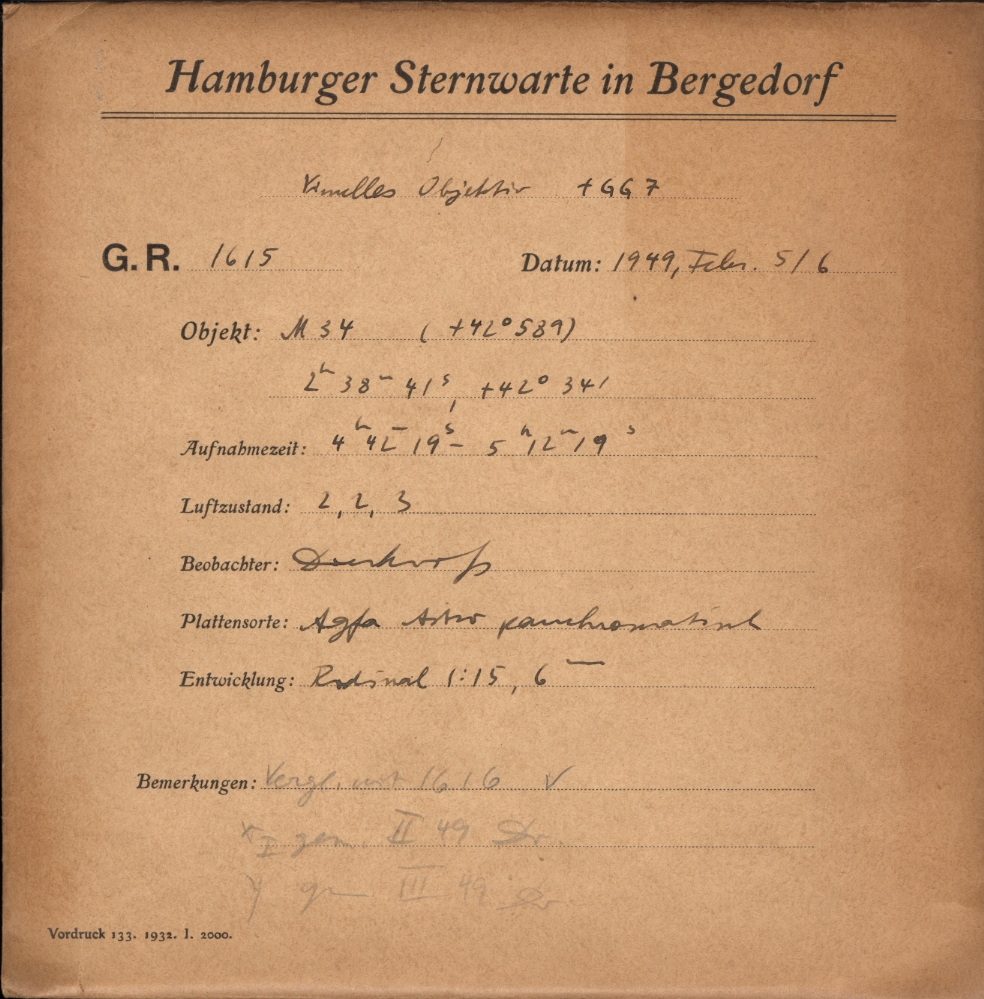 Hamburger Sternwarte in Bergedorf
Visuelles Objektiv + GG 7
G. R. 1615 Datum: 1949, Febr. 5/6
Objekt: M 34 ( +42° 589)
2ʰ 38ᵐ 41ˢ, +42° 34'
Aufnahmezeit: 4ʰ 42ᵐ 19ˢ – 5ʰ 12ᵐ 19ˢ
Luftzustand: 2, 2, 3
Beobachter:
Plattensorte: Agfa Astro panchromatisch
Entwicklung: Rodinal 1:15, 6ᵐ
Bemerkungen: Vergl. mit 1616 V
x I gem. II 49 Dr.
y gem III 49 Dr.
Vordruck 133. 1932. I. 2000.